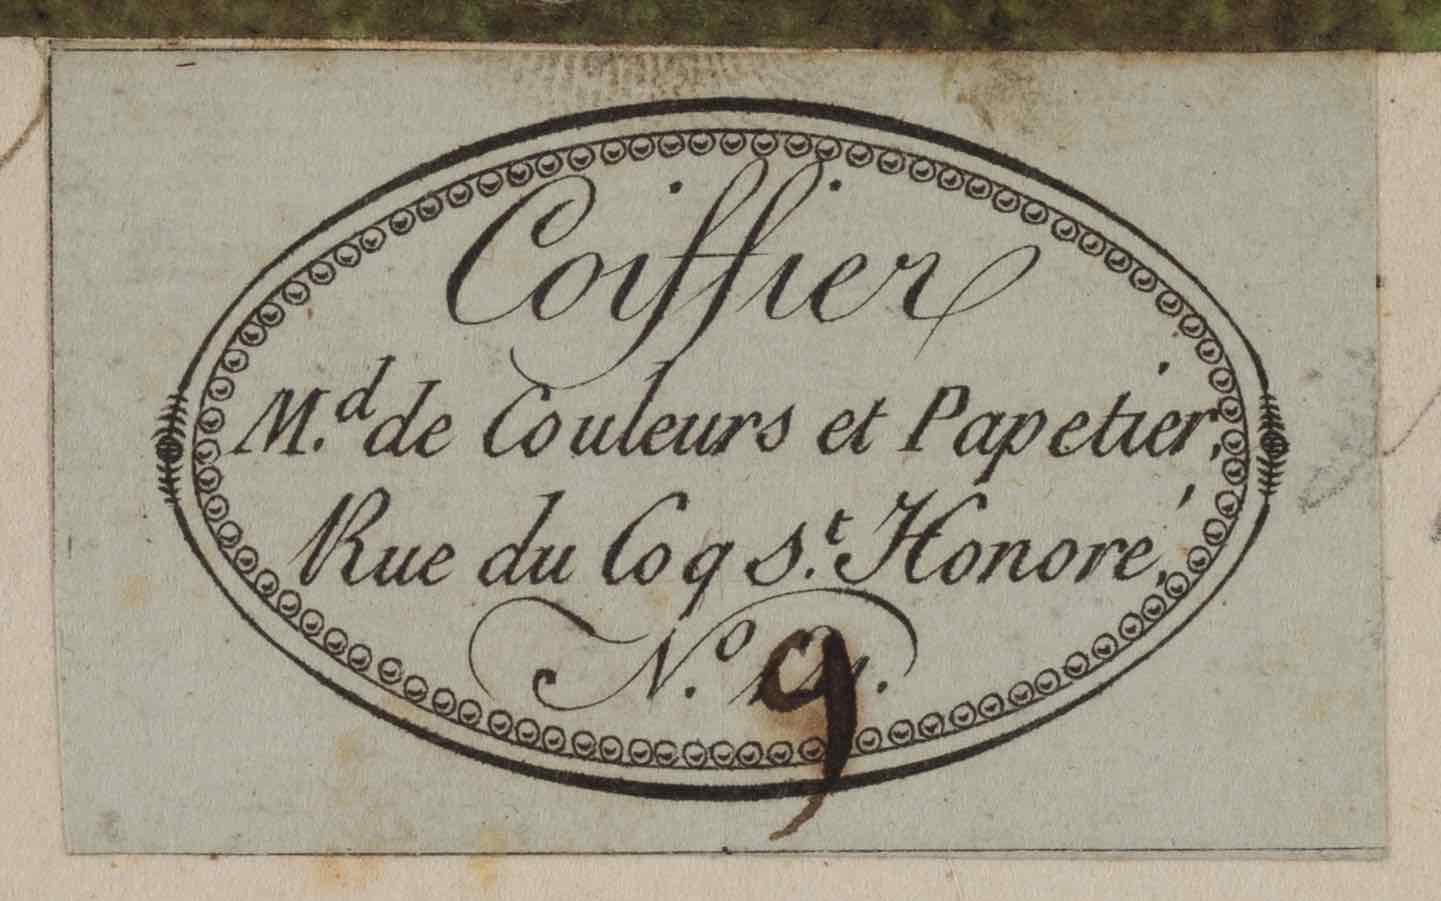 Coiffier
M.d de Couleurs et Papetier,
Rue du Coq S.t Honoré,
N.o 9